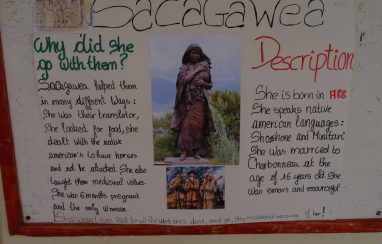 Sacagawea
Why did she
go with them?
Sacagawea helped them
in many diffrent ways:
She was their translator,
She looked for food, she
dealt with the native
american's to have horses
and not be attacked. She also
taught them medicinal values.
She was 6 months pregnant
and the only woman.
She wasn't even paid for all the work she's done, and yet, they succeeded because of her!
Description
She is born in 1788
She speaks native
american languages:
Shoshone and Minitari
She was married to
Charbonneau at the
age of 16 years old. She
was smart and resourceful